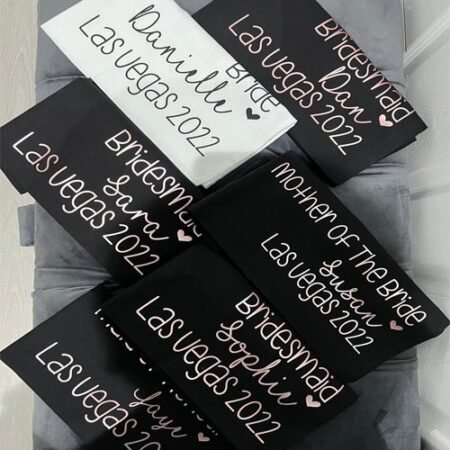 Bride
Danielle
Las Vegas 2022
Bridesmaid
Dan
Las Vegas 2022
Bridesmaid
Sara
Las Vegas 2022
Mother Of The Bride
Susan
Las Vegas 2022
Bridesmaid
Sophie
Las Vegas 2022
Faye
Las Vegas 2022